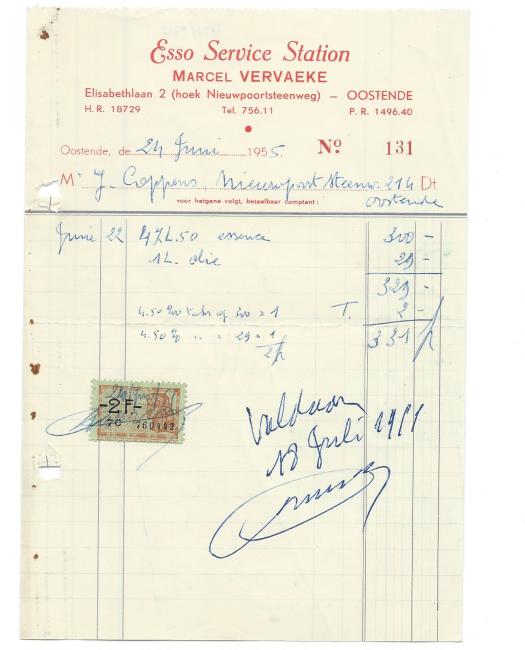 Esso Service Station
MARCEL VERVAEKE
Elisabethlaan 2 (hoek Nieuwpoortsteenweg) – OOSTENDE
H. R. 18729 Tel. 756.11 P. R. 1496.40
Oostende, de 24 Juni 1955. No 131
Mr J. Coppens, Nieuwpoort Steenw. 214 Dt
voor hetgene volgt, betaalbaar comptant : Oostende
Juni 22 47L.50 essence 300 -
1L. olie 29 -
329 -
4.50 % taks op 300 = 1 T. 2 -
4.50 % " " 29 = 1 331
2
-2F.-
7C 760442
Voldaan
18 Juli 1955